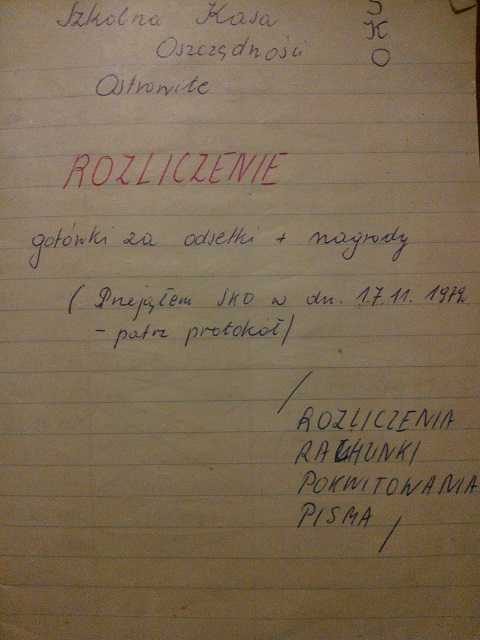 Szkolna Kasa
Oszczędności
Ostrowite
S
K
O
ROZLICZENIE
gotówki za odsetki + nagrody
( Przejąłem SKO w dn. 17.11. 1979
- patrz protokół/
/
ROZLICZENIA
RACHUNKI
POKWITOWANIA
PISMA /